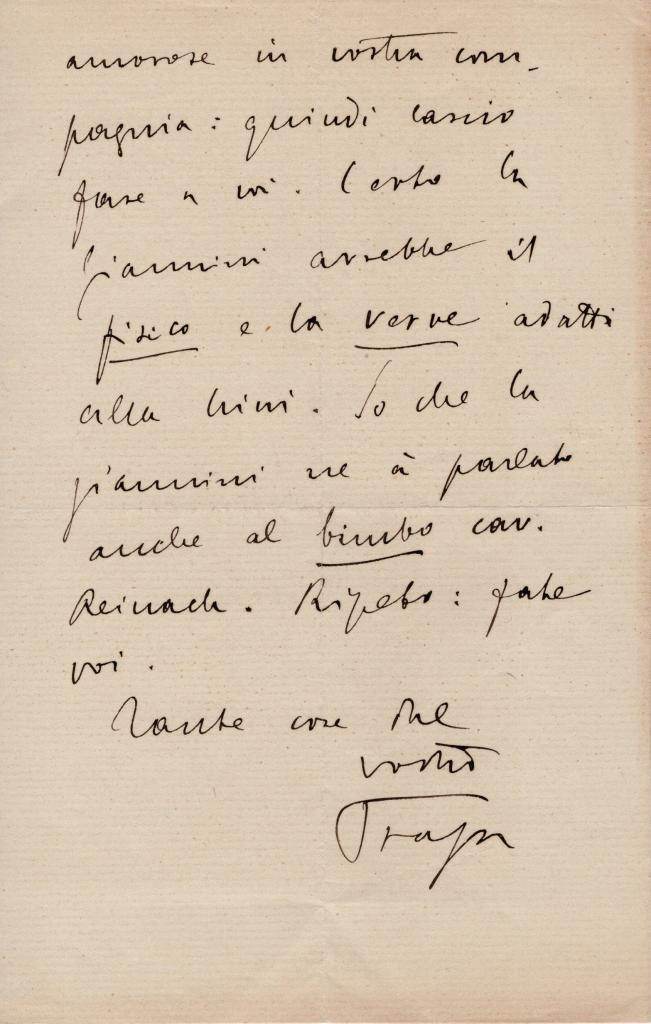 amorose in vostra com-
pagnia: quindi lascio
fare a voi. Certo la
Giannini avrebbe il
fisico e la verve adatti
alla Mimì. So che la
Giannini ne à parlato
anche al bimbo cav.
Reinach. Ripeto: fate
voi.
Tante cose del
vostro